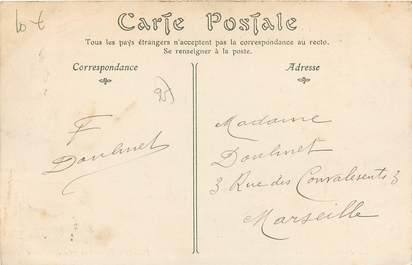 Carte Postale
Tous les pays étrangers n'acceptent pas la correspondance au recto.
Se renseigner à la poste.
Correspondance
Adresse
F
Madame
3 Rue des Convalesents 3
Marseille